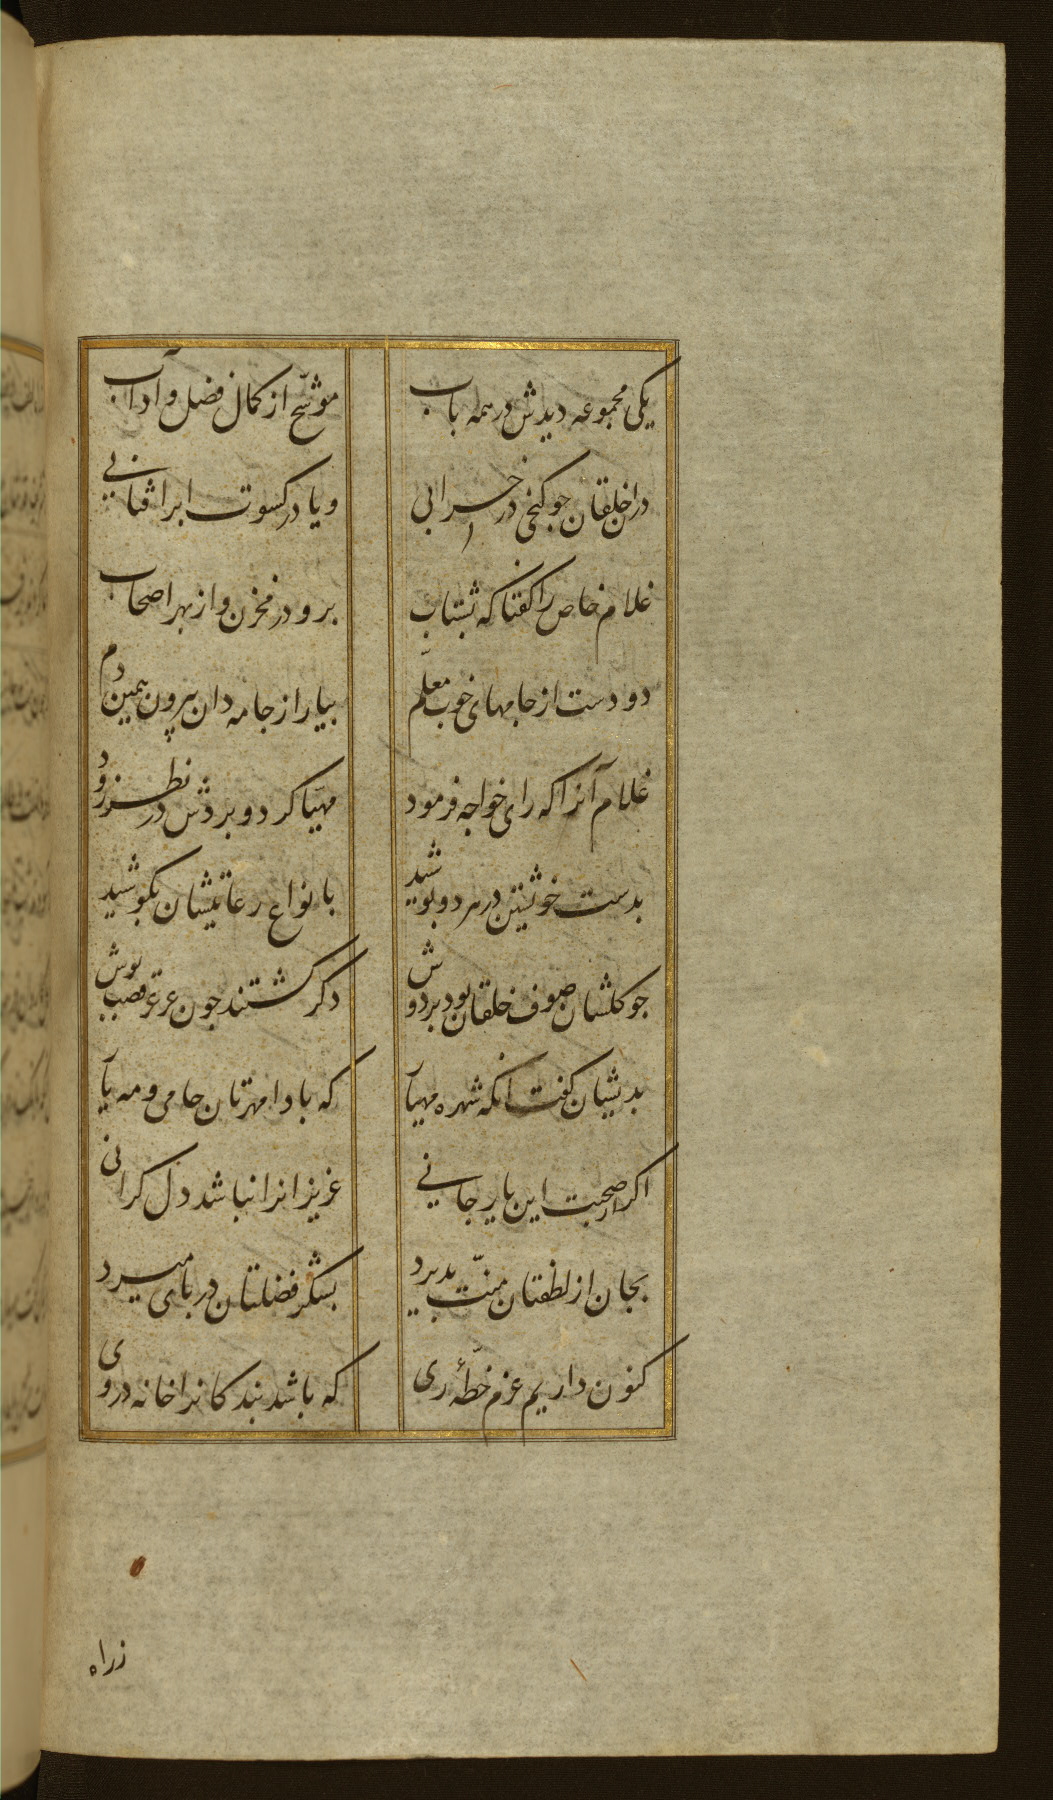 یکی مجموعه دیدش در همه باب موشّح از کمال فضل و آداب
در اخلقان جو کنجی در خرابی و یا در کسوت ابر افتابی
غلام خاص را کفتا که بشتاب برو در مخزن و از بهر اصحاب
دو دست از جامهای خوب معلّم بیار از جامه دان بیرون همین دم
غلام آنرا که رای خواجه فرمود مهیّا کرد و بردش در نظر زود
بدست خویشتن در هر دو پوشید بانواع رعایتشان بکوشید
جو کلشان صوف خلقان بود بر دوش دکر کشتند جون عرعر قصب پوش
بدیشان کفت انکه شهره مهیآ که بادا مهرتان حامی و مه یآ
اکر از صحبت این یار جانی عزیزانرا نباشد دل کرانی
بجان از لطفتان منّت پذیرد بشکر فضلتان در پای میرد
کنون داریم عزم خطّهٔ ری که باشد بندکانرا خانه در وی
زراه